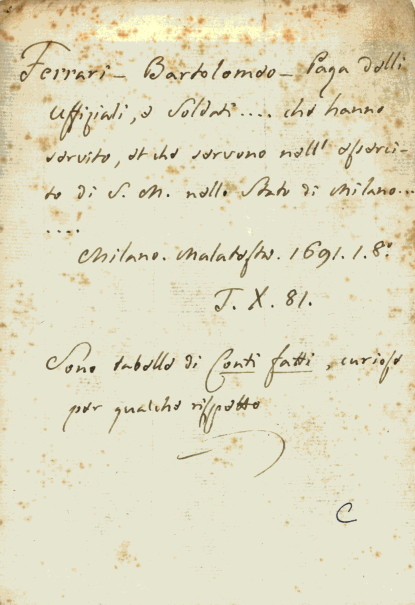 Ferrari - Bartolomeo - Paga delli
Uffiziali, e Soldati .... che hanno
servito, et che servono nell' eserci-
to di S. M. nello Stato di Milano...
....
Milano. Malatesta. 1691. 1. 8.o
T. X. 81.
Sono tabelle di Conti fatti, curiose
per qualche rispetto
C